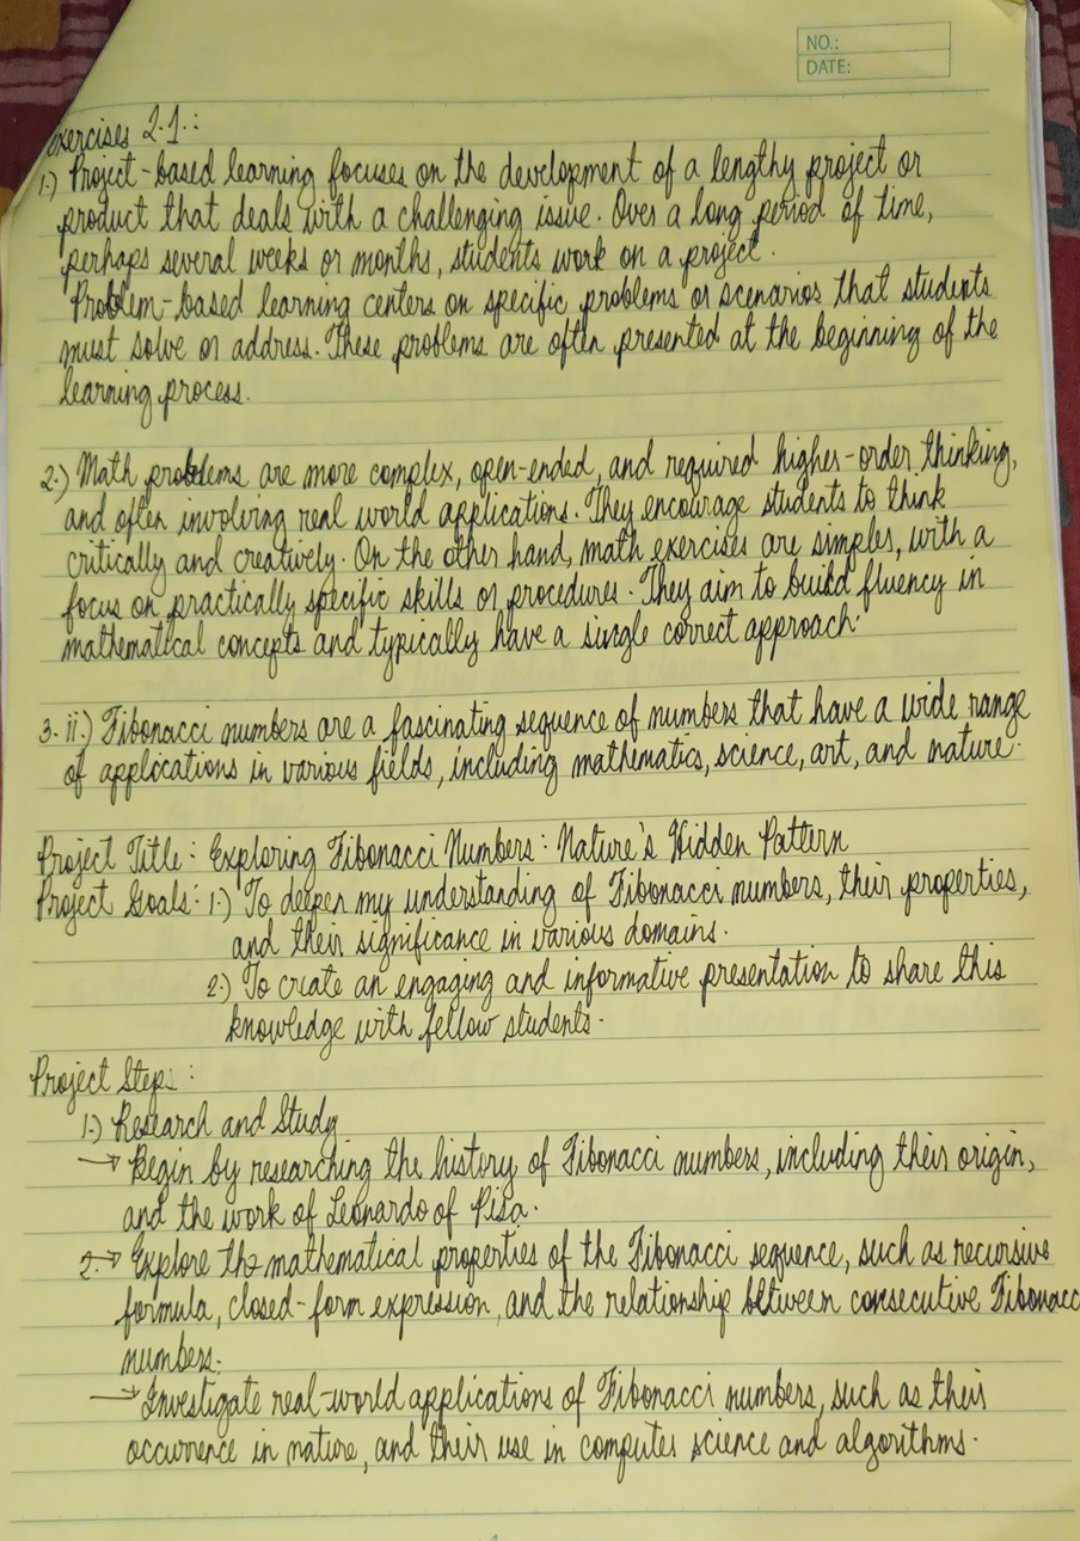 NO.:
DATE:
Exercises 2.1.:
1.) Project-based learning focuses on the development of a lengthy project or
product that deals with a challenging issue. Over a long period of time,
perhaps several weeks or months, students work on a project.
Problem-based learning centers on specific problems or scenarios that students
must solve or address. These problems are often presented at the beginning of the
learning process.
2.) Math problems are more complex, open-ended, and required higher-order thinking,
and often involving real world applications. They encourage students to think
critically and creatively. On the other hand, math exercises are simples, with a
focus on practically specific skills or procedures. They aim to build fluency in
mathematical concepts and typically have a single correct approach.
3. ii.) Fibonacci numbers are a fascinating sequence of numbers that have a wide range
of applocations in various fields, including mathematics, science, art, and nature.
Project Title: Exploring Fibonacci Numbers: Nature's Hidden Pattern
Project Goals: 1.) To deepen my understanding of Fibonacci numbers, their properties,
and their significance in various domains.
2.) To create an engaging and informative presentation to share this
knowledge with fellow students.
Project Steps:
1.) Research and Study
→ Begin by researching the history of Fibonacci numbers, including their origin,
and the work of Leonardo of Pisa.
2.→ Explore the mathematical properties of the Fibonacci sequence, such as recursive
formula, closed-form expression, and the relationship between consecutive Fibonacc
numbers.
→ Investigate real-world applications of Fibonacci numbers, such as their
occurrence in nature, and their use in computer science and algorithms.